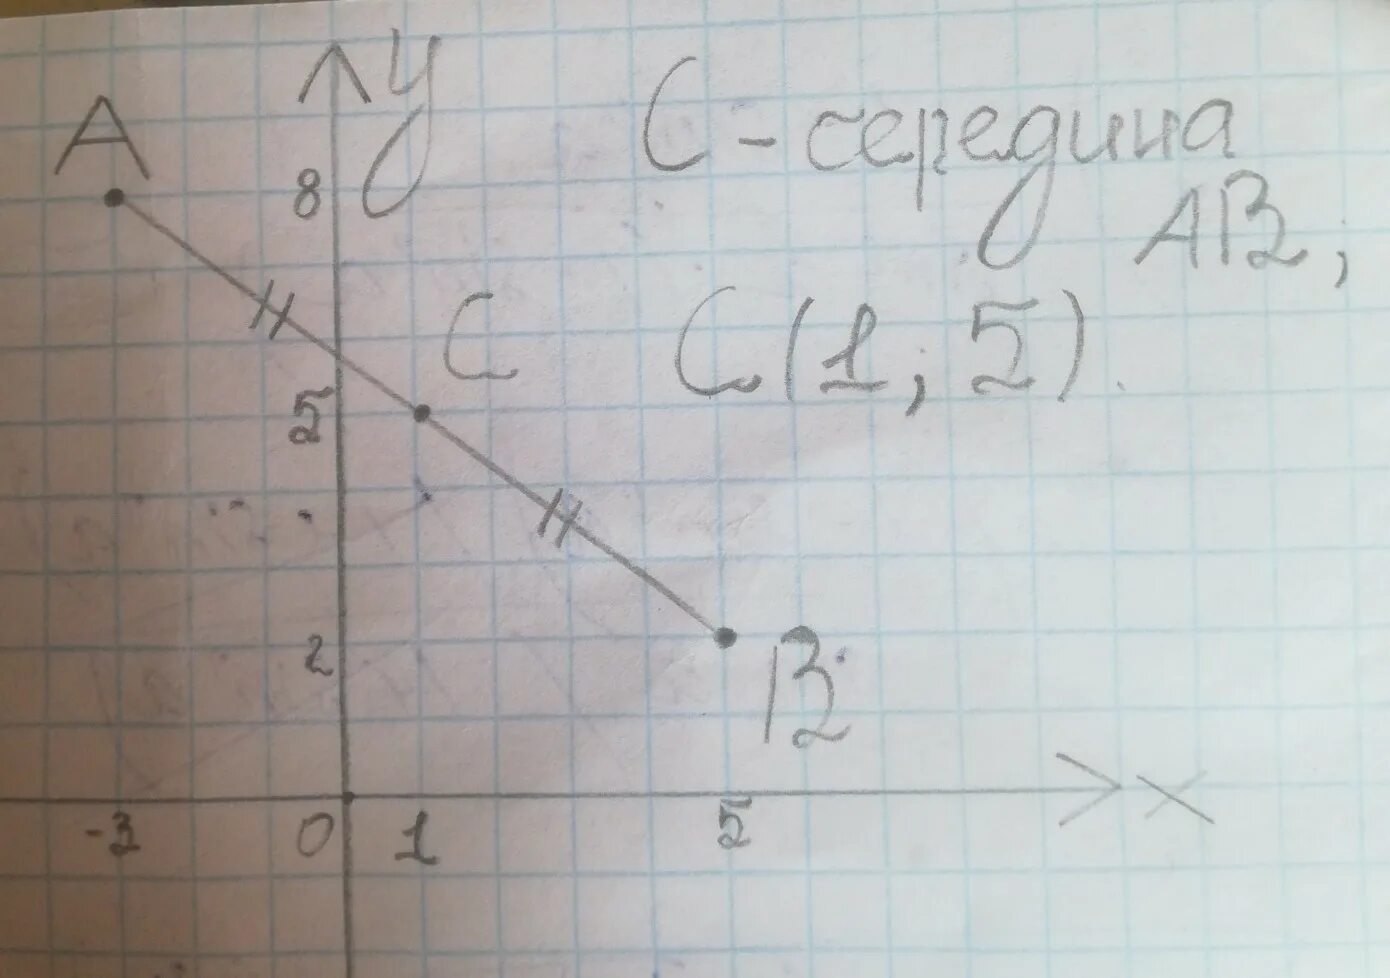 y
C - середина
A
8
AB,
C
C(1; 5).
5
2
B
-3
0
1
5
x